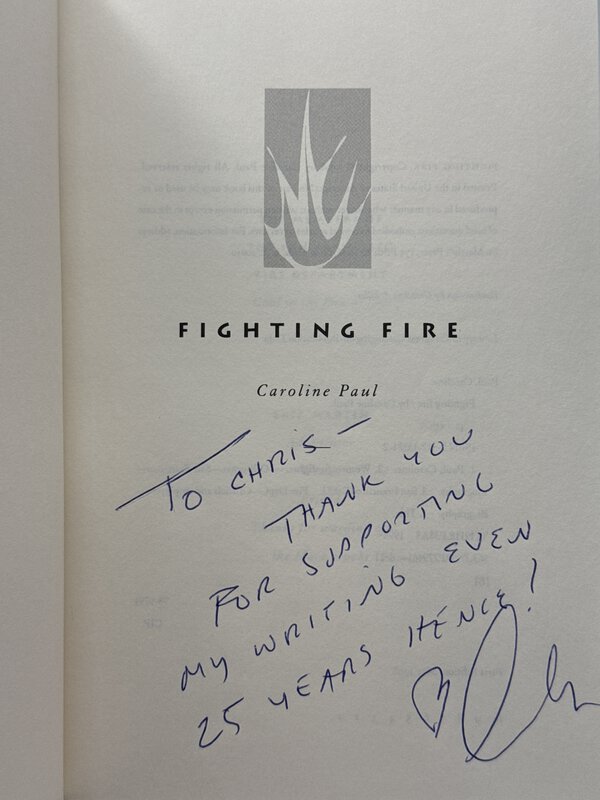 FIGHTING FIRE
Caroline Paul
TO CHRIS—
THANK YOU
FOR SUPPORTING
MY WRITING EVEN
25 YEARS HENCE!